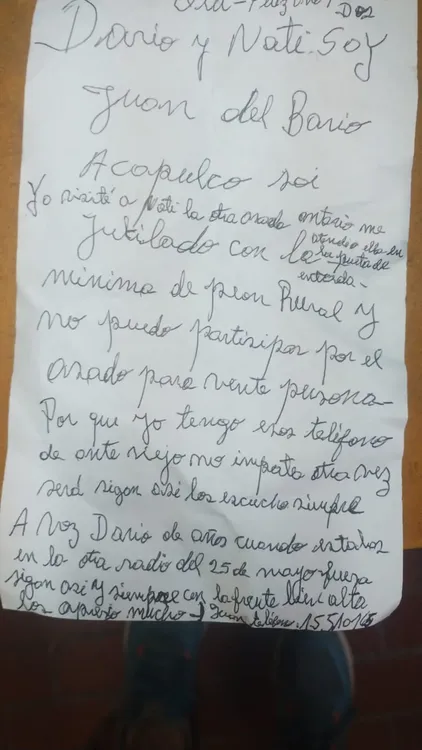 Dos
Dario y Nati. Soy
Juan del Bario
Acapulco soi
Yo visité a Nati la otra asada anterio me
atendio ella en
Jubilado con la
la puerta de
entrada -
minima de peon Rural y
no puedo partisipar por el
asado para vente persona
Por que yo tengo esos teléfono
de ante viejo no inpata otra vez
será sigan asi los escucho simpre
A voz Dario de años cuando estabas
en la otra radio del 25 de mayo fuersa
sigan asi y siempre con la frente bien alta
los apresio mucho Juan teléfono. 15510165